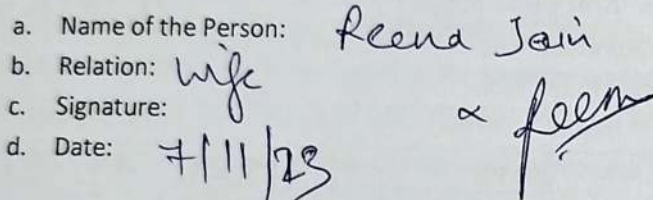 a. Name of the Person: Reena Jain
b. Relation: Wife
c. Signature: x Reena
d. Date: 7/11/23